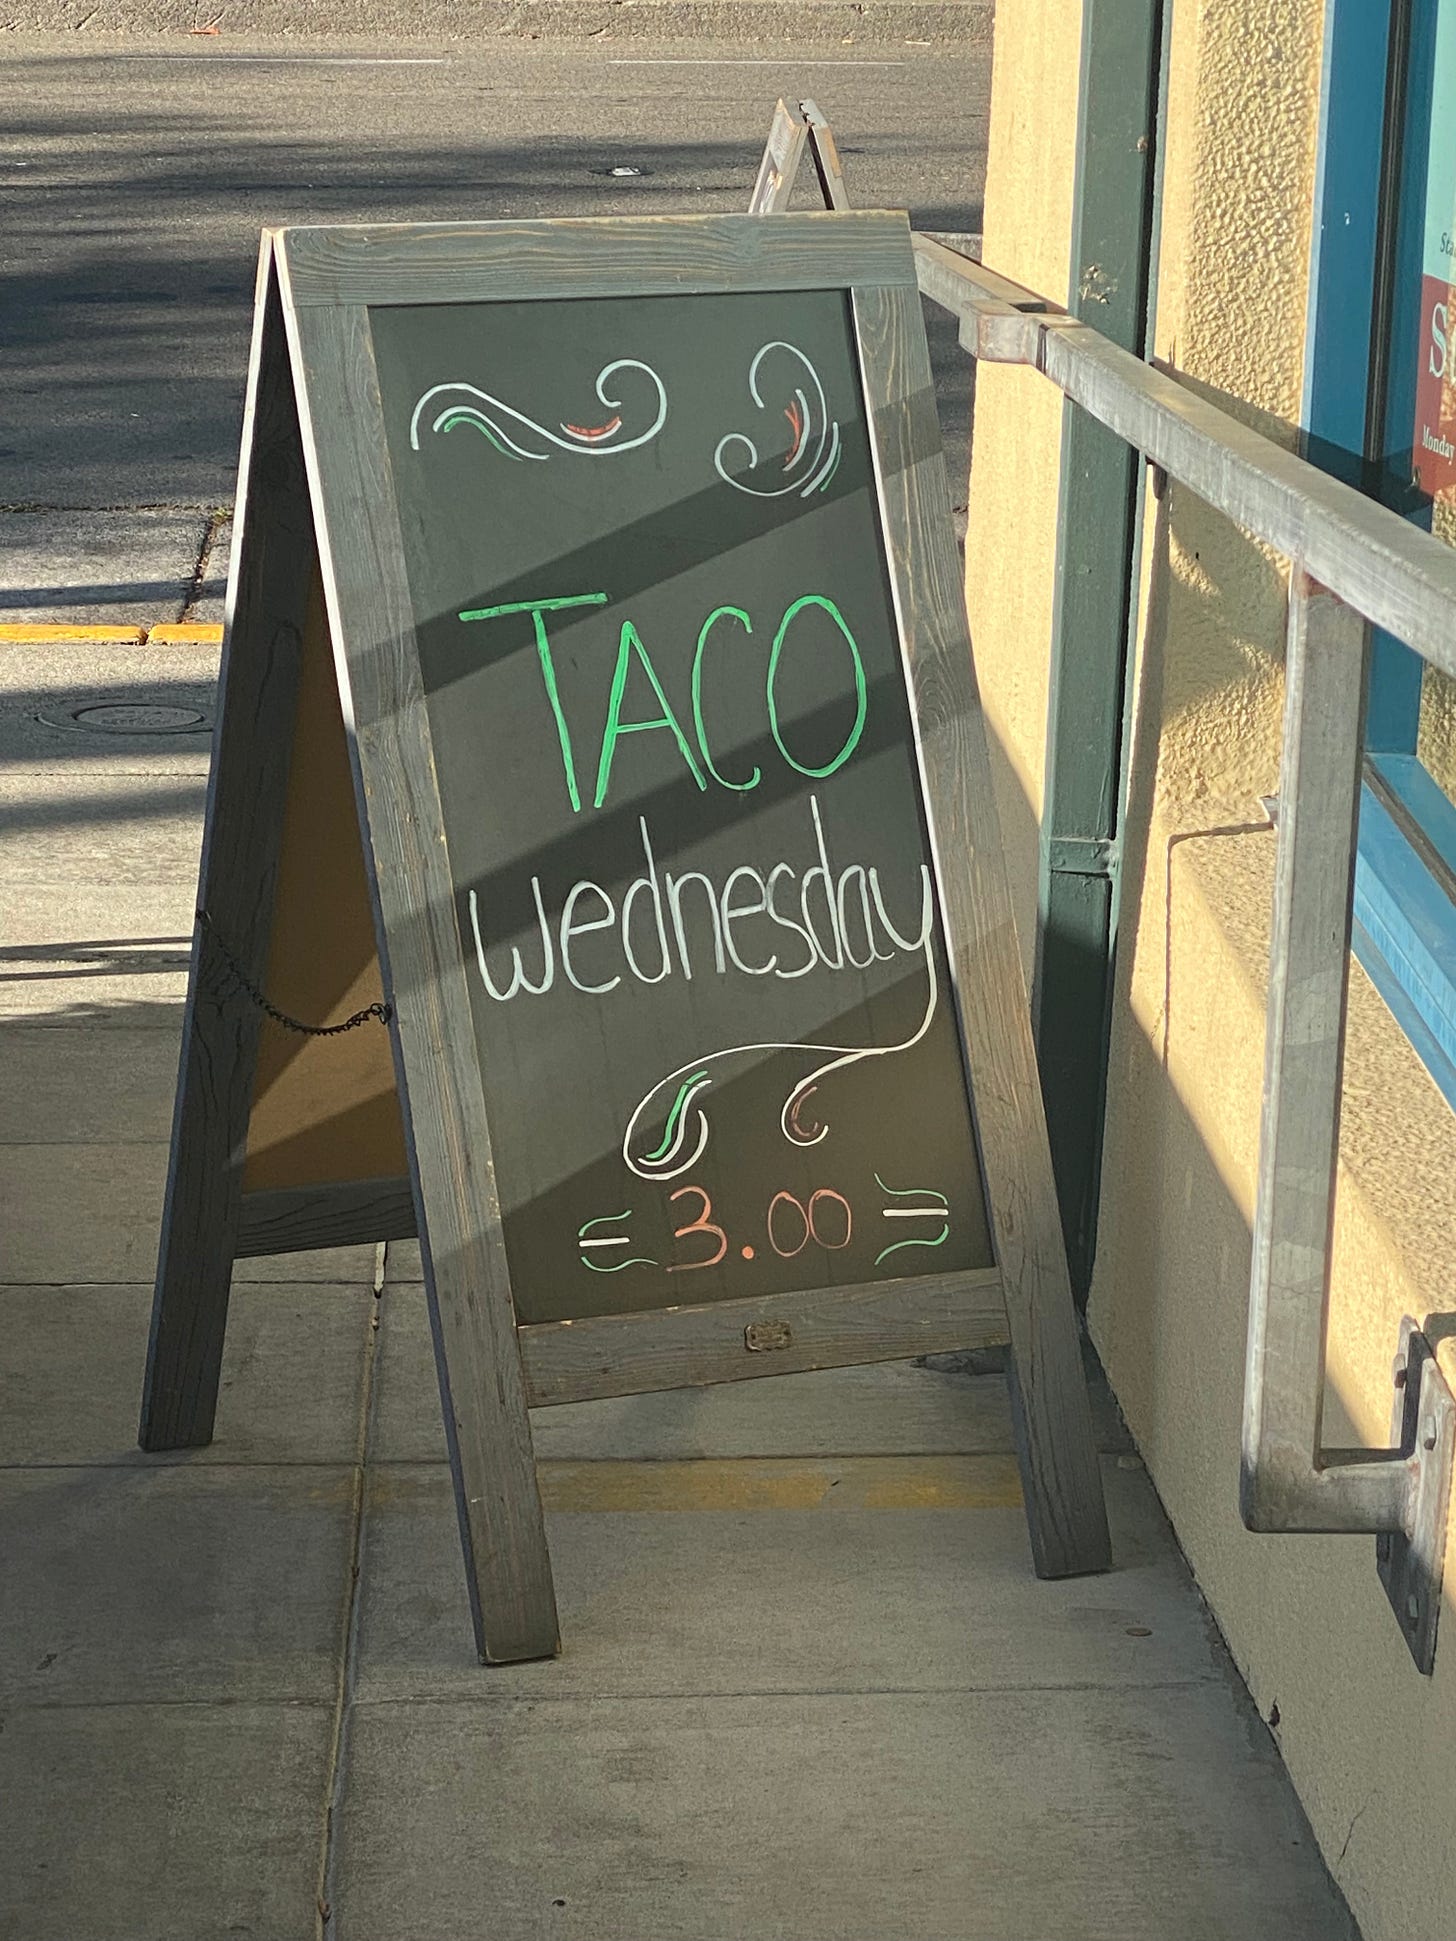 TACO
Wednesday
3.00
Monday